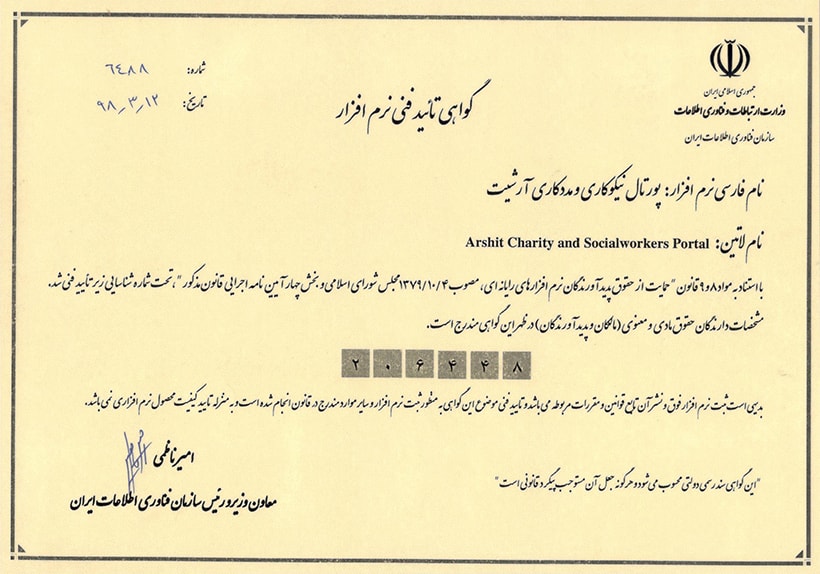 جمهوری اسلامی ایران
وزارت ارتباطات و فناوری اطلاعات
سازمان فناوری اطلاعات ایران
شماره: ٦٤٨٨
تاریخ: ٩٨٫٣٫١٢
گواهی تائید فنی نرم افزار
نام فارسی نرم افزار: پورتال نیکوکاری و مددکاری آرشیت
نام لاتین: Arshit Charity and Socialworkers Portal
با استناد به مواد ۸ و ۹ قانون "حمایت از حقوق پدیدآورندگان نرم افزارهای رایانه ای، مصوب ۱۳۷۹/۱۰/۴ مجلس شورای اسلامی و بخش چهار آیین نامه اجرایی قانون مذکور"، تحت شماره شناسایی زیر تأیید فنی شد.
مشخصات دارندگان حقوق مادی و معنوی (مالکان و پدیدآورندگان) در ظهر این گواهی مندرج است.
۲ ۰ ۶ ۴ ۴ ۸
بدیهی است ثبت نرم افزار فوق و نشر آن تابع قوانین و مقررات مربوطه می باشد و تایید فنی موضوع این گواهی به منظور ثبت نرم افزار و سایر موارد مندرج در قانون انجام شده است و به منزله تایید کیفیت محصول نرم افزاری نمی باشد.
امیر ناظمی
معاون وزیر و رئیس سازمان فناوری اطلاعات ایران
"این گواهی سند رسمی دولتی محسوب می شود و هرگونه جعل آن مستوجب پیگرد قانونی است"